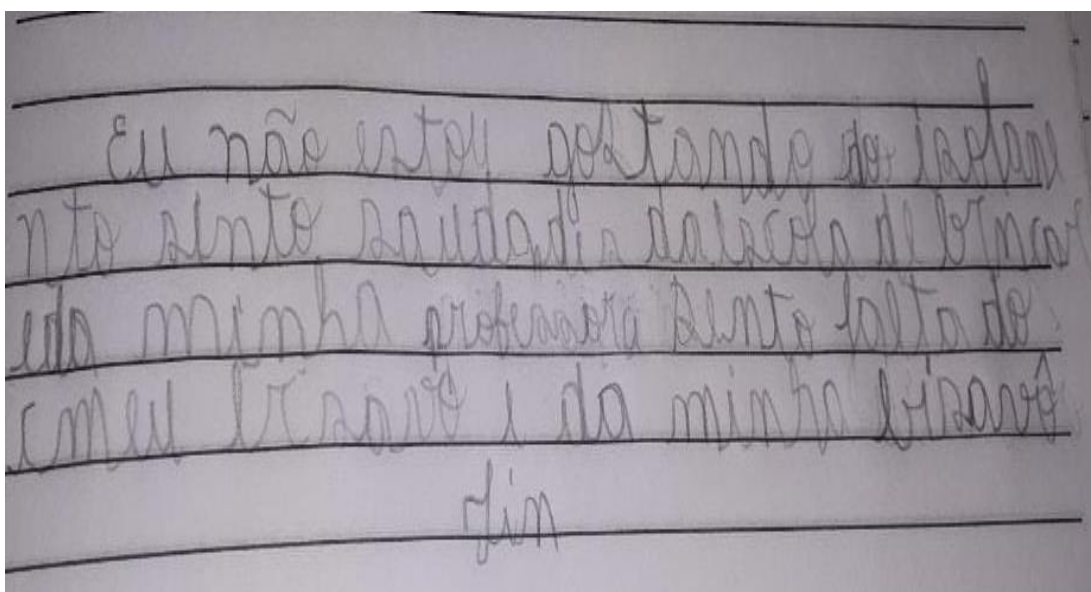 Eu não estoy gostando do isolame
nto sinto saudadis da iscola de brincar
eda minha professora sinto falta do
meu bisavô i da minha bisavó
fin